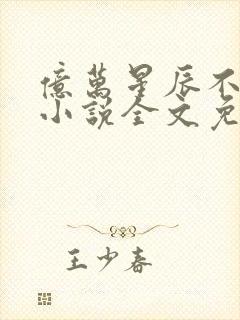 億萬星辰不
小說全文免
王少春